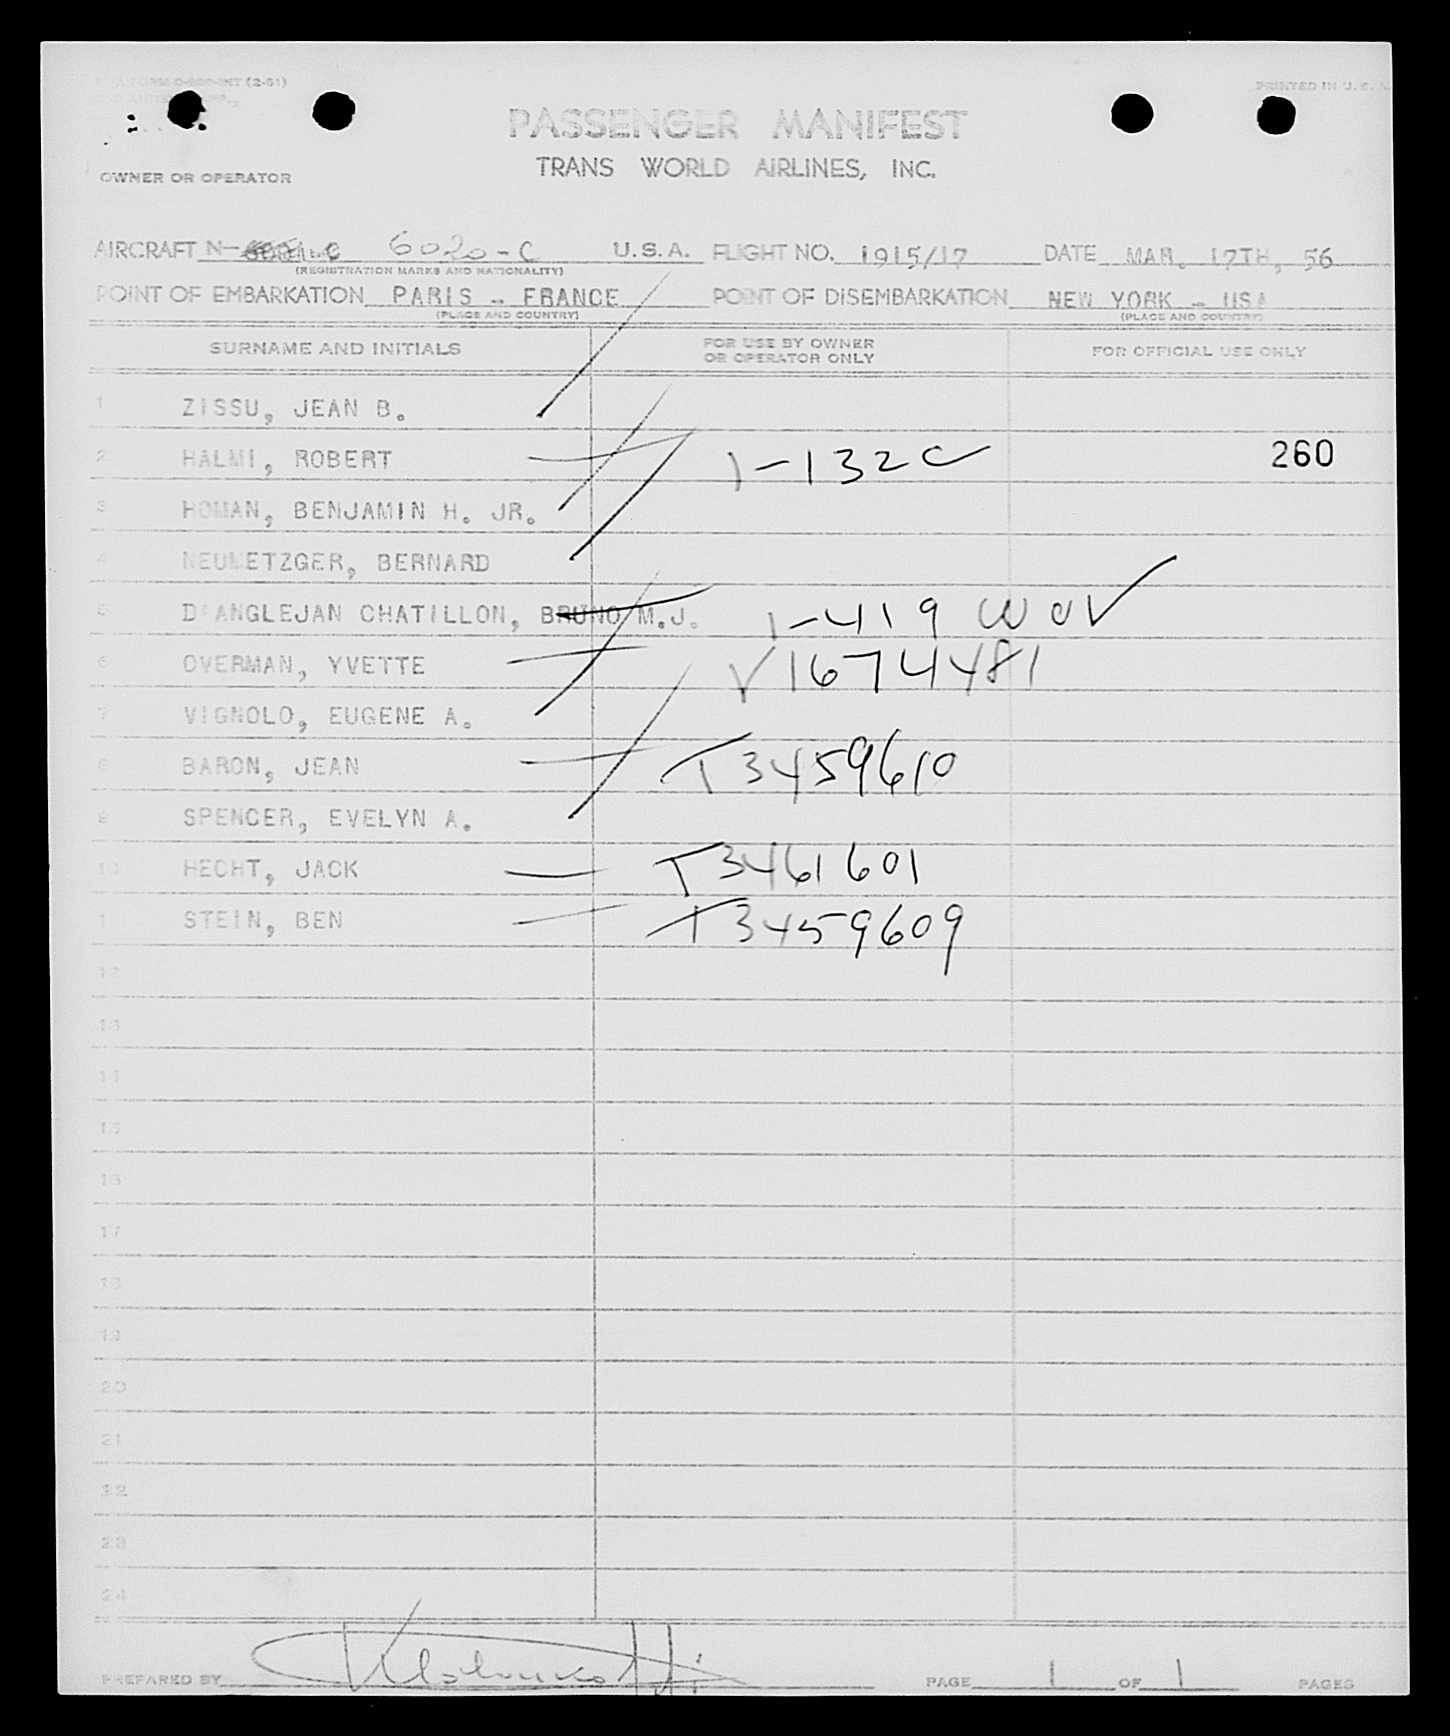 FORM O-800-INT (2-51)
PRINTED IN U.S.A.
PASSENGER MANIFEST
TRANS WORLD AIRLINES, INC.
OWNER OR OPERATOR
AIRCRAFT N- 6020-C U.S.A. FLIGHT NO. 1915/17 DATE MAR. 17TH, 56
(REGISTRATION MARKS AND NATIONALITY)
POINT OF EMBARKATION PARIS - FRANCE POINT OF DISEMBARKATION NEW YORK - USA
(PLACE AND COUNTRY) (PLACE AND COUNTRY)
SURNAME AND INITIALS FOR USE BY OWNER OR OPERATOR ONLY FOR OFFICIAL USE ONLY
1 ZISSU, JEAN B.
2 HALMI, ROBERT 1-132 C 260
3 HOMAN, BENJAMIN H. JR.
4 NEUMETZGER, BERNARD
5 D'ANGLEJAN CHATILLON, BRUNO M.J. 1-419 WOV
6 OVERMAN, YVETTE V1674481
7 VIGNOLO, EUGENE A.
8 BARON, JEAN T3459610
9 SPENCER, EVELYN A.
10 HECHT, JACK T3461601
11 STEIN, BEN T3459609
12
13
14
15
16
17
18
19
20
21
22
23
24
PREPARED BY PAGE 1 OF 1 PAGES